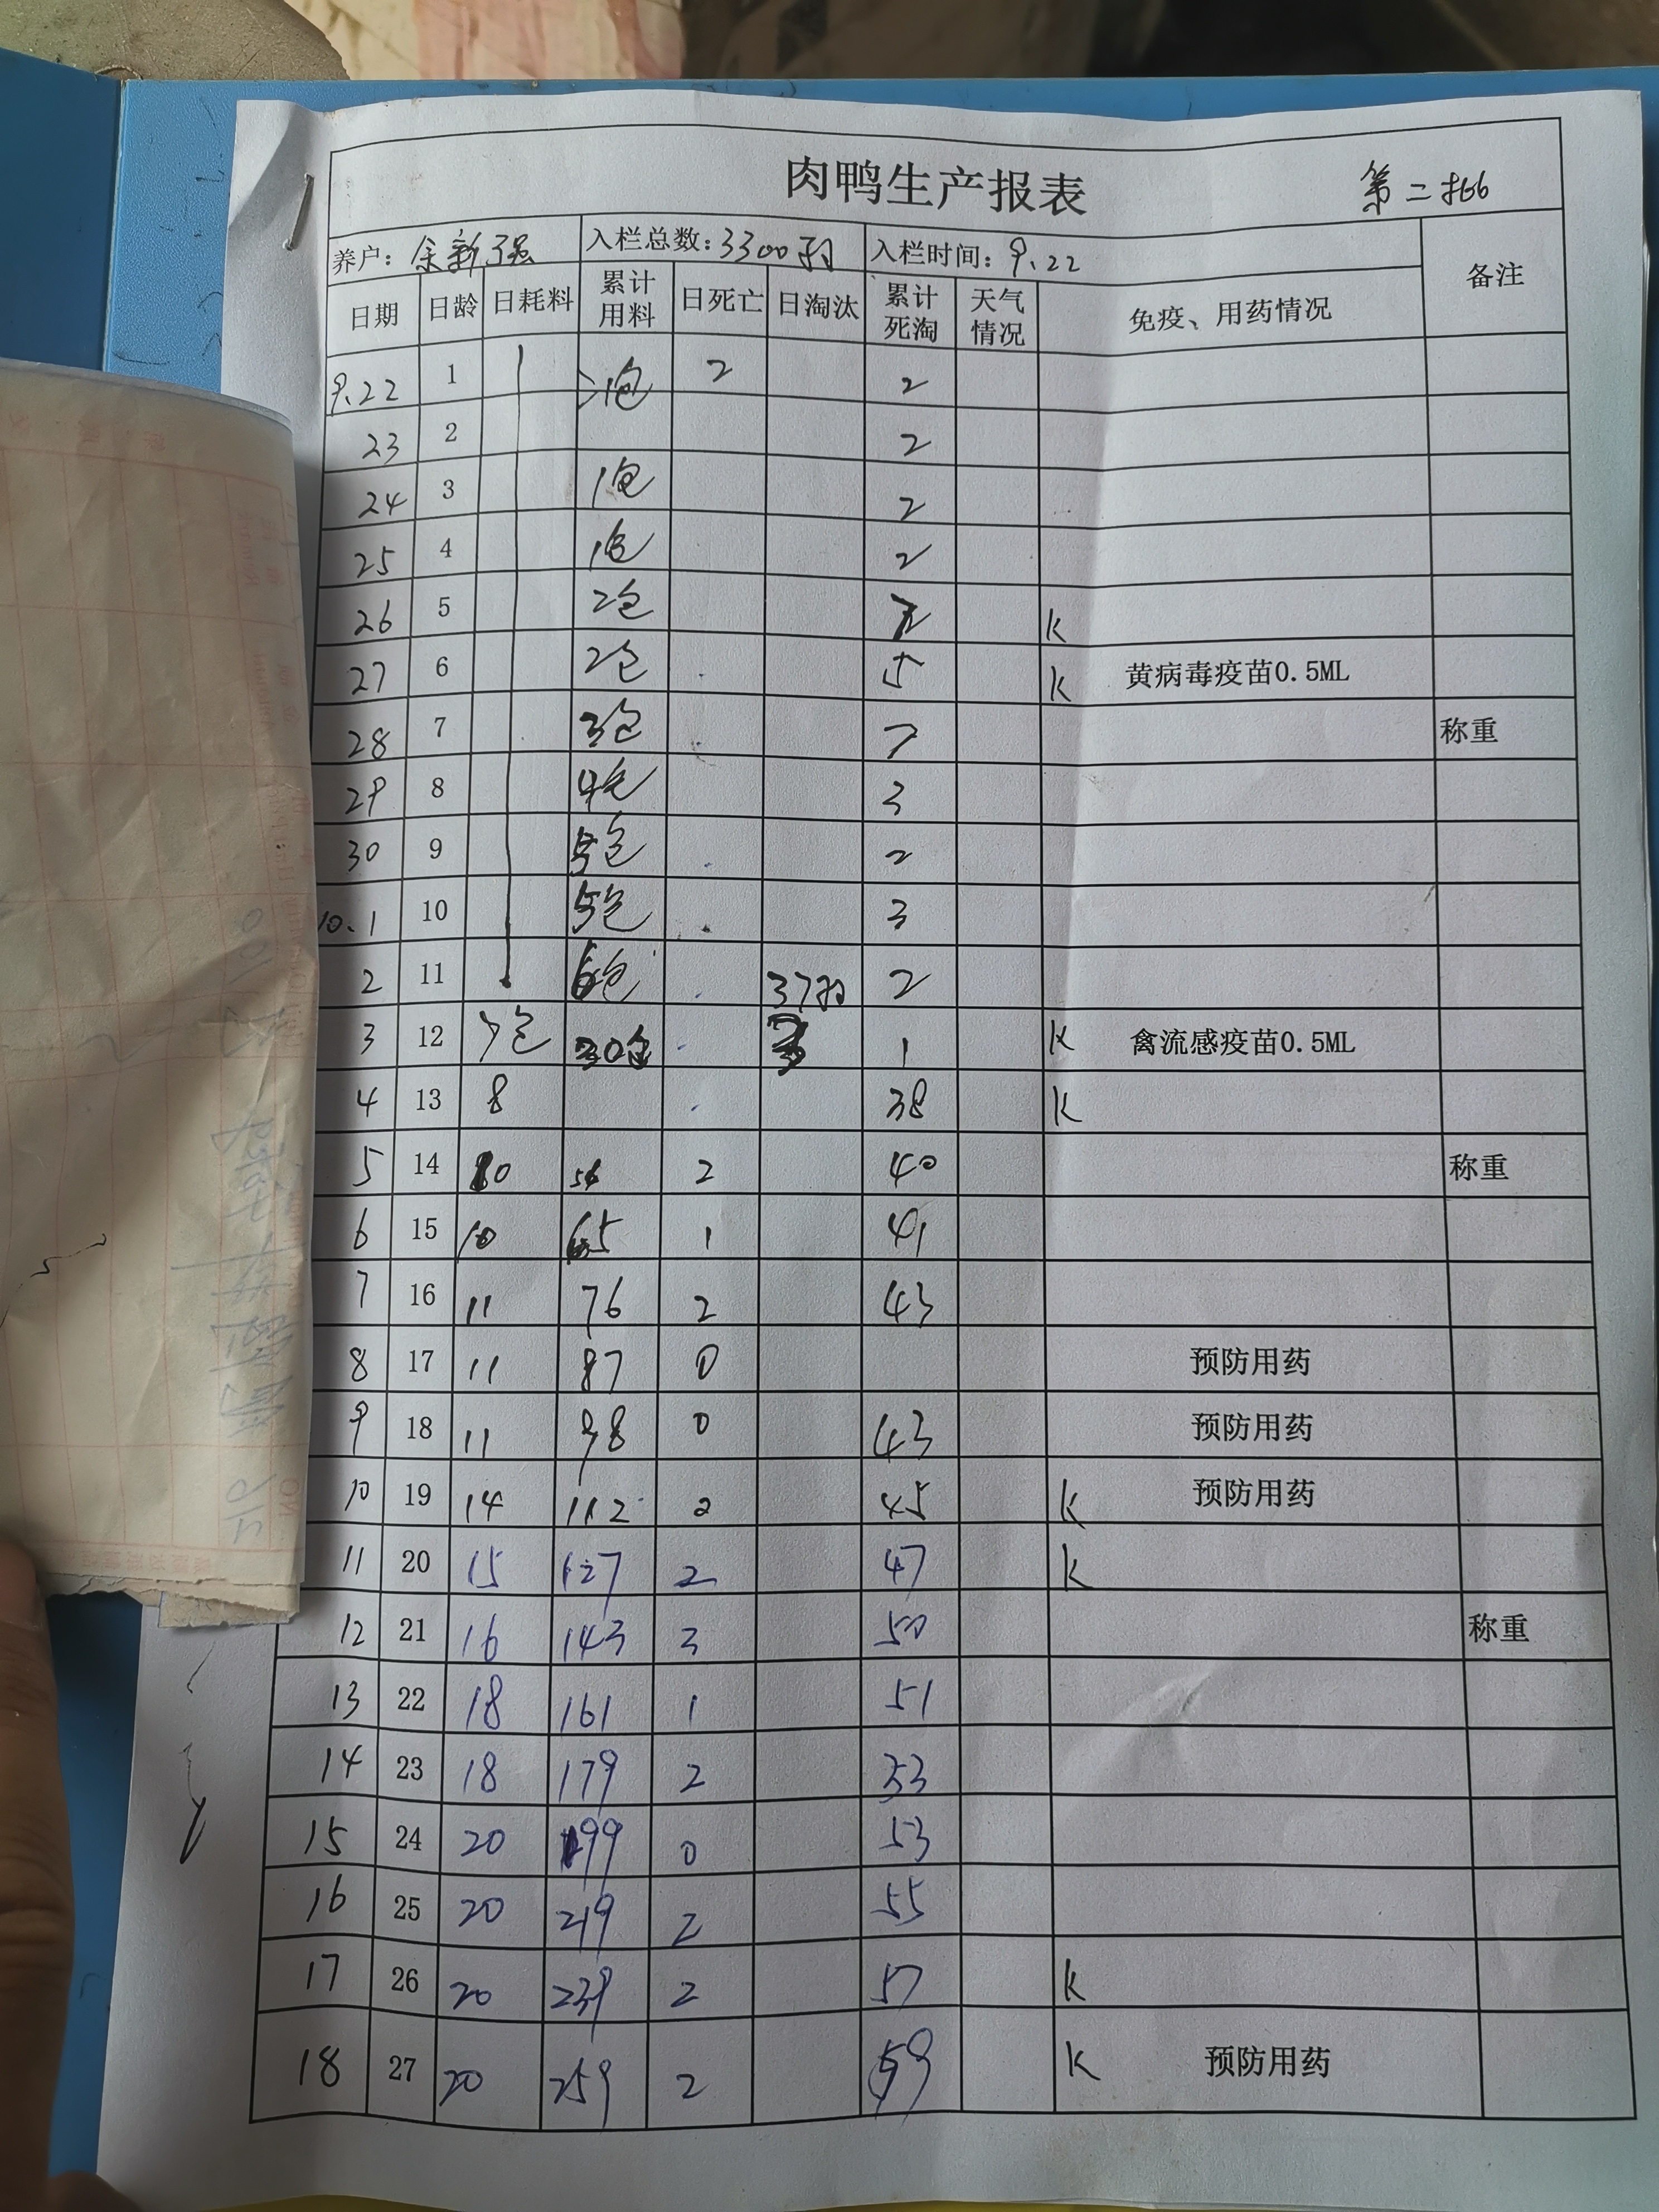 肉鸭生产报表 第二批
养户：余新强 入栏总数：3300羽 入栏时间：9.22 备注
日期 日龄 日耗料 累计用料 日死亡 日淘汰 累计死淘 天气情况 免疫、用药情况
9.22 1 包 2 2
23 2 2
24 3 1包 2
25 4 1包 2
26 5 2包 K
27 6 2包 5 K 黄病毒疫苗0.5ML
28 7 3包 称重
29 8 4包 3
30 9 5包 2
10.1 10 5包 3
2 11 6包 37羽 2
3 12 7包 30包 1 K 禽流感疫苗0.5ML
4 13 8 38 K
5 14 10 2 40 称重
6 15 10 65 1 41
7 16 11 76 2 43
8 17 11 87 0 预防用药
9 18 11 98 0 43 预防用药
10 19 14 112 2 45 K 预防用药
11 20 15 127 2 47 K
12 21 16 143 3 50 称重
13 22 18 161 1 51
14 23 18 179 2 53
15 24 20 199 0 53
16 25 20 219 2 55
17 26 20 239 2 57 K
18 27 20 259 2 59 K 预防用药